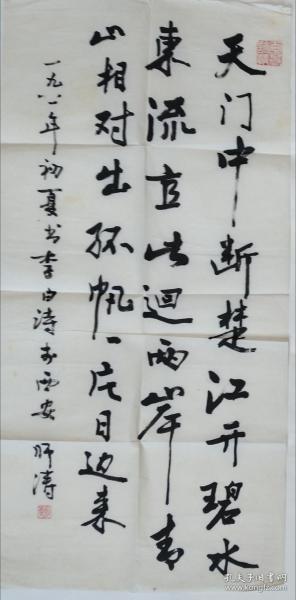 天门中断楚江开碧水
东流直此迴两岸青
山相对出孤帆一片日边来
一九八一年初夏书李白诗于西安 师涛
孔夫子旧书网